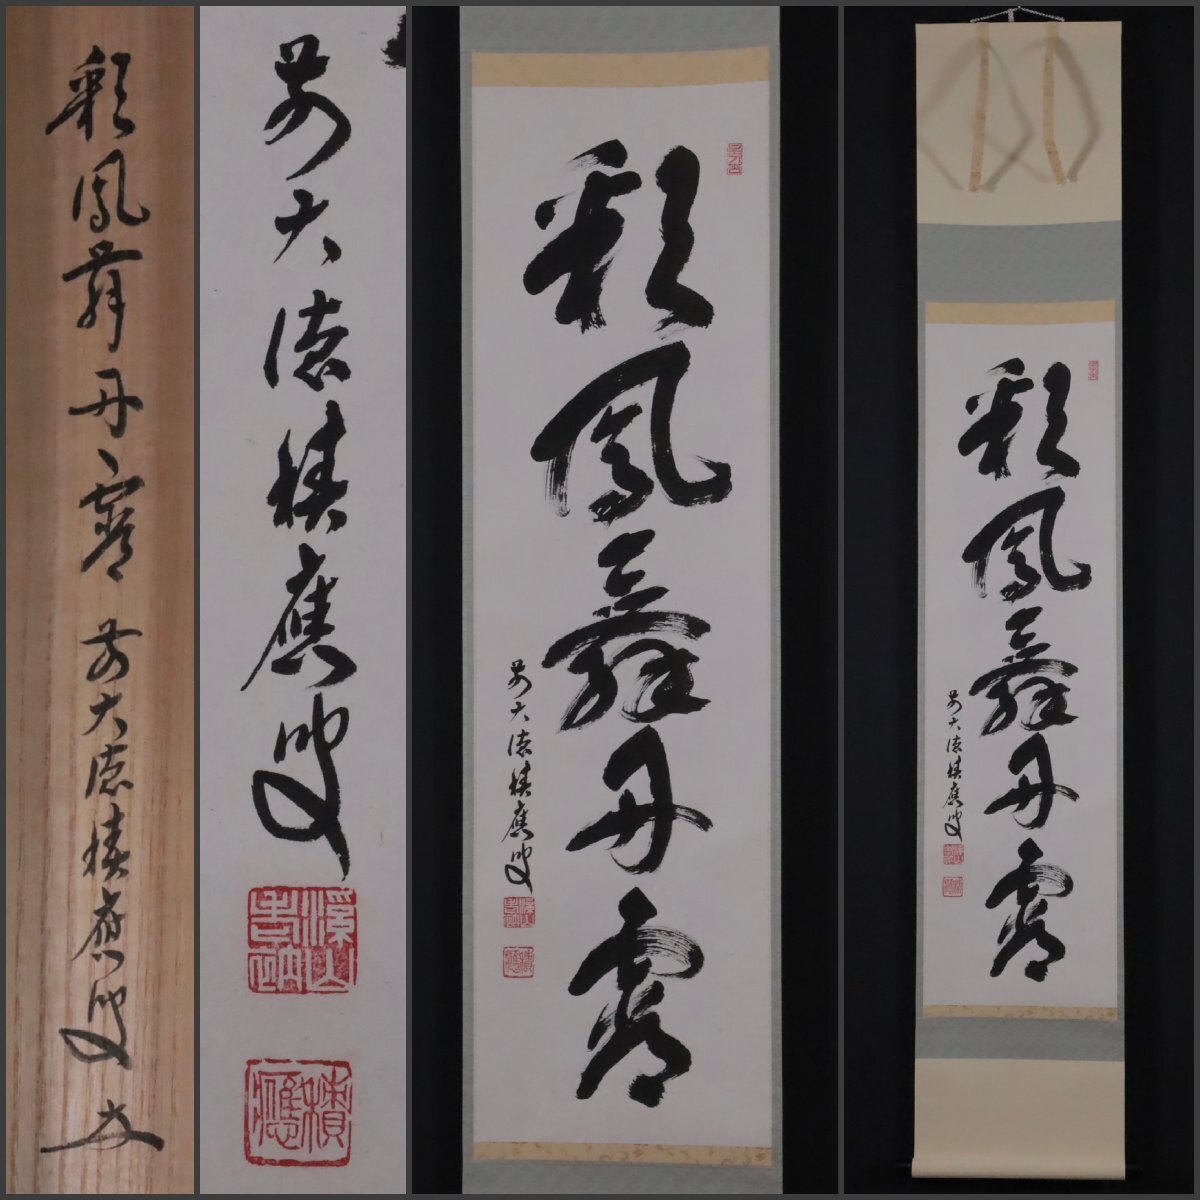 彩鳳舞丹霄 前大徳積應叟
前大徳積應叟
溪山
積應
彩鳳舞丹霄
前大徳積應叟
彩鳳舞丹霄
前大徳積應叟